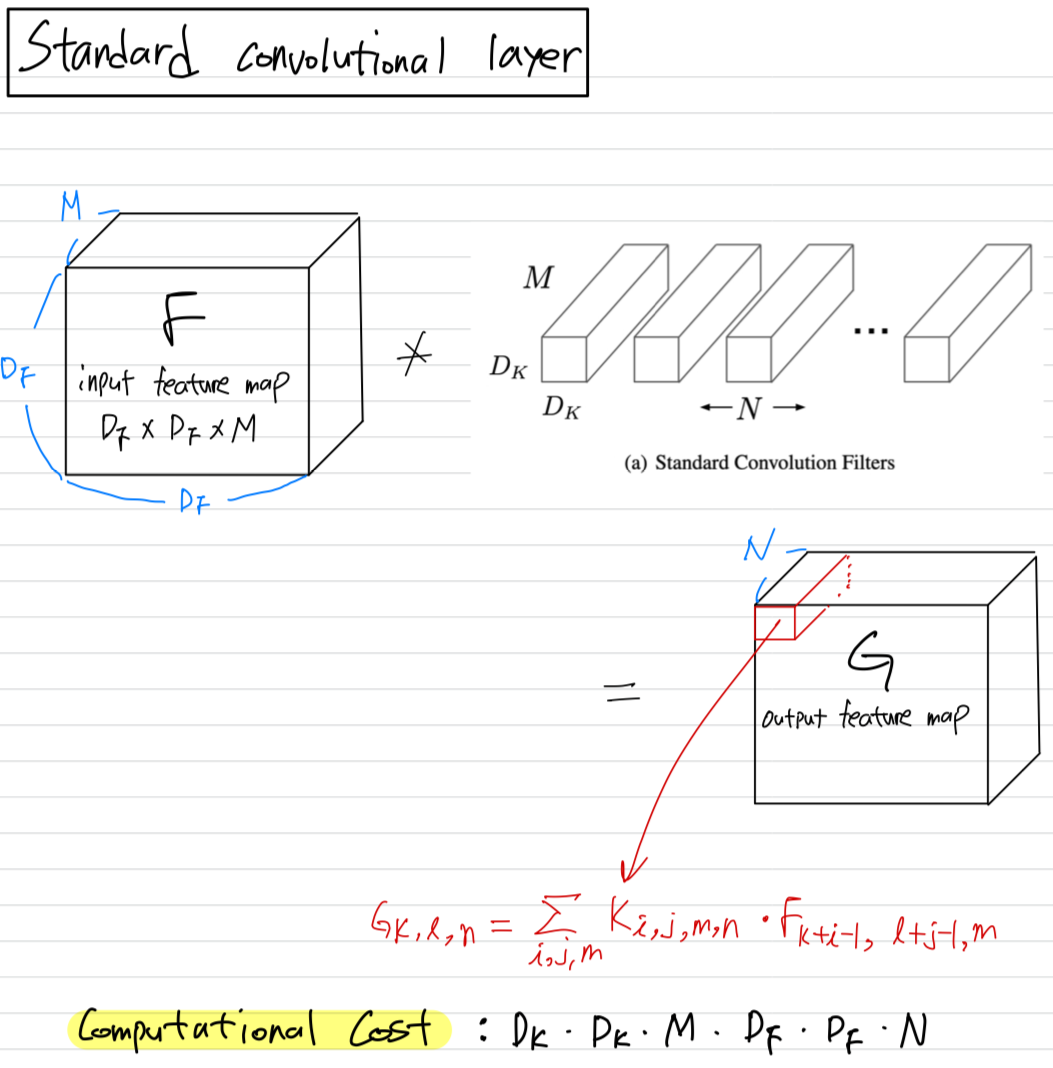 Standard convolutional layer
M
F
input feature map
D_F x D_F x M
D_F
D_F
*
M
D_K
D_K
...
←N→
(a) Standard Convolution Filters
N
=
G
output feature map
G_{k,l,n} = Σ_{i,j,m} K_{i,j,m,n} · F_{k+i-1, l+j-1, m}
Computational Cost : D_K · D_K · M · D_F · D_F · N